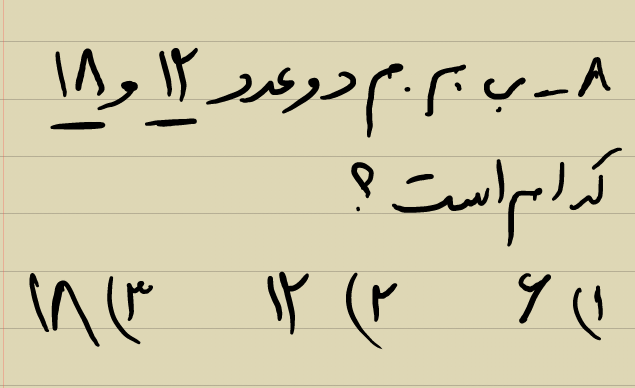 ۸ـ ب.م.م دو عدد ۱۲ و ۱۸
کدام است؟
۱) ۶ ۲) ۱۲ ۳) ۱۸